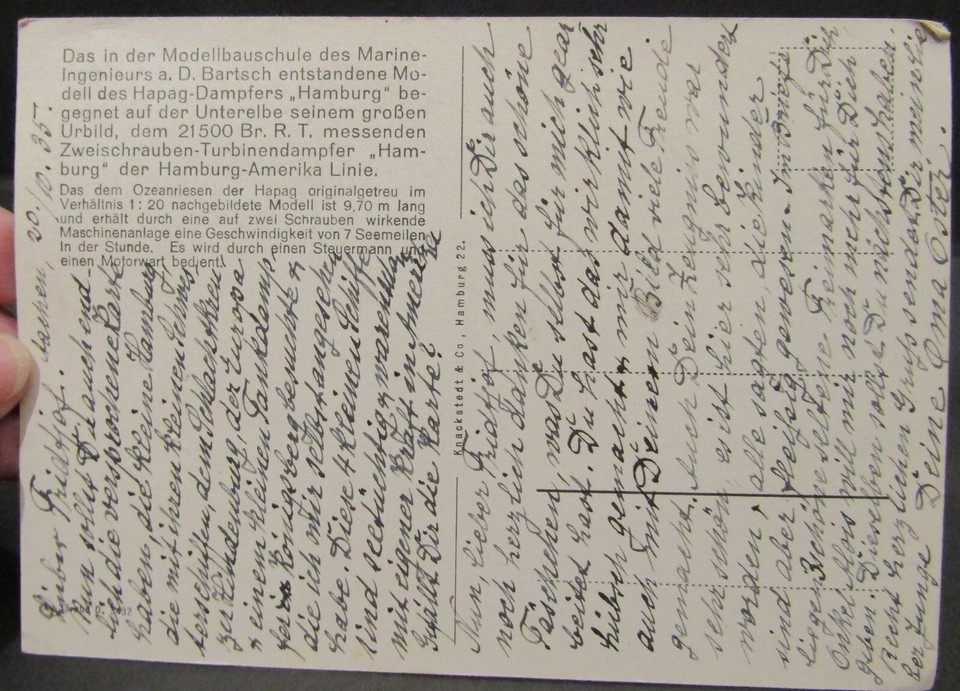 Das in der Modellbauschule des Marine-
Ingenieurs a. D. Bartsch entstandene Mo-
dell des Hapag-Dampfers „Hamburg" be-
gegnet auf der Unterelbe seinem großen
Urbild, dem 21500 Br. R. T. messenden
Zweischrauben-Turbinendampfer „Ham-
burg" der Hamburg-Amerika Linie.
Das dem Ozeanriesen der Hapag originalgetreu im
Verhältnis 1 : 20 nachgebildete Modell ist 9,70 m lang
und erhält durch eine auf zwei Schrauben wirkende
Maschinenanlage eine Geschwindigkeit von 7 Seemeilen
In der Stunde. Es wird durch einen Steuermann und
einen Motorwart bedient.
Knackstedt & Co., Hamburg 22.
Aachen, 20./10. 35.
Lieber Fridtjof!
Nun sollst Du auch end-
lich die versprochene Karte
haben, die kleine Hamburg
die mit ihren kleinen Schwes
terschiffen, dem Schlachtkreu
zer Hindenburg, der Europa
einem kleinen Tankdamp
fer Königsberg besuchte
die ich mir selbst angesehen
habe. Diese 4 kleinen Schiffe
sind seetüchtig waren
mit eigener Kraft in Amerika
Gefällt Dir die Karte?
Nun, lieber Fridtjof, muss ich Dir auch
noch herzlich danken für das schöne
Täschchen, was Du selbst für mich gear
beitet hast. Du hast das wirklich sehr
hübsch gemacht mir damit wie
auch mit Deinem Bild viele Freude
gemacht. Auch Dein Zeugnis war
sehr schön, es ist hier sehr bewundert
worden, alle sagten, die Kinder
sind aber fleißig gewesen. Im Briefe
liegen schöne seltene Freimarken für Dich
Onkel Alois will mir noch mehr für Dich
geben. Dieselben sollst Du nächstens haben.
Recht herzlichen Gruß sendet Dir mein lie
ber Junge Deine Oma Öster.